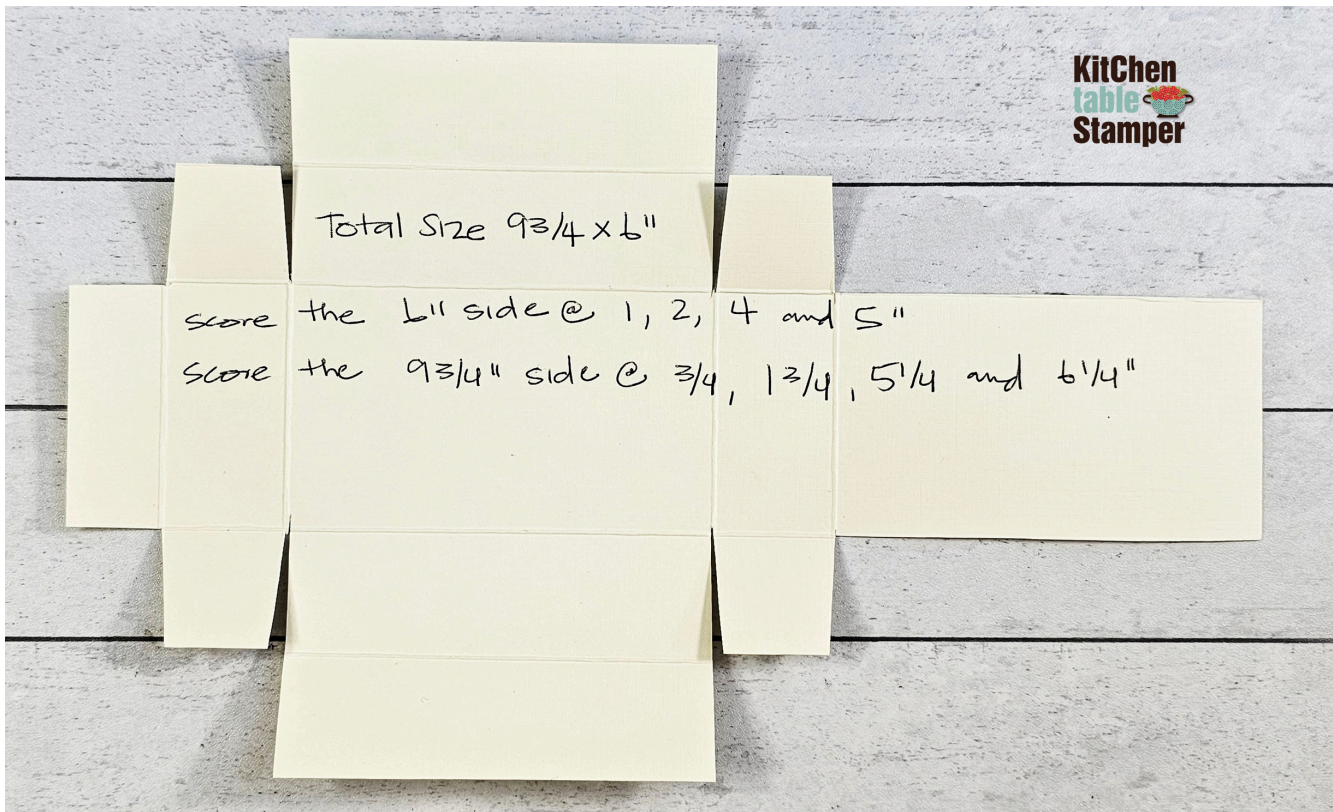 KitChen
table
Stamper
Total Size 9 3/4 x 6"
score the 6" side @ 1, 2, 4 and 5"
score the 9 3/4" side @ 3/4, 1 3/4, 5 1/4 and 6 1/4"